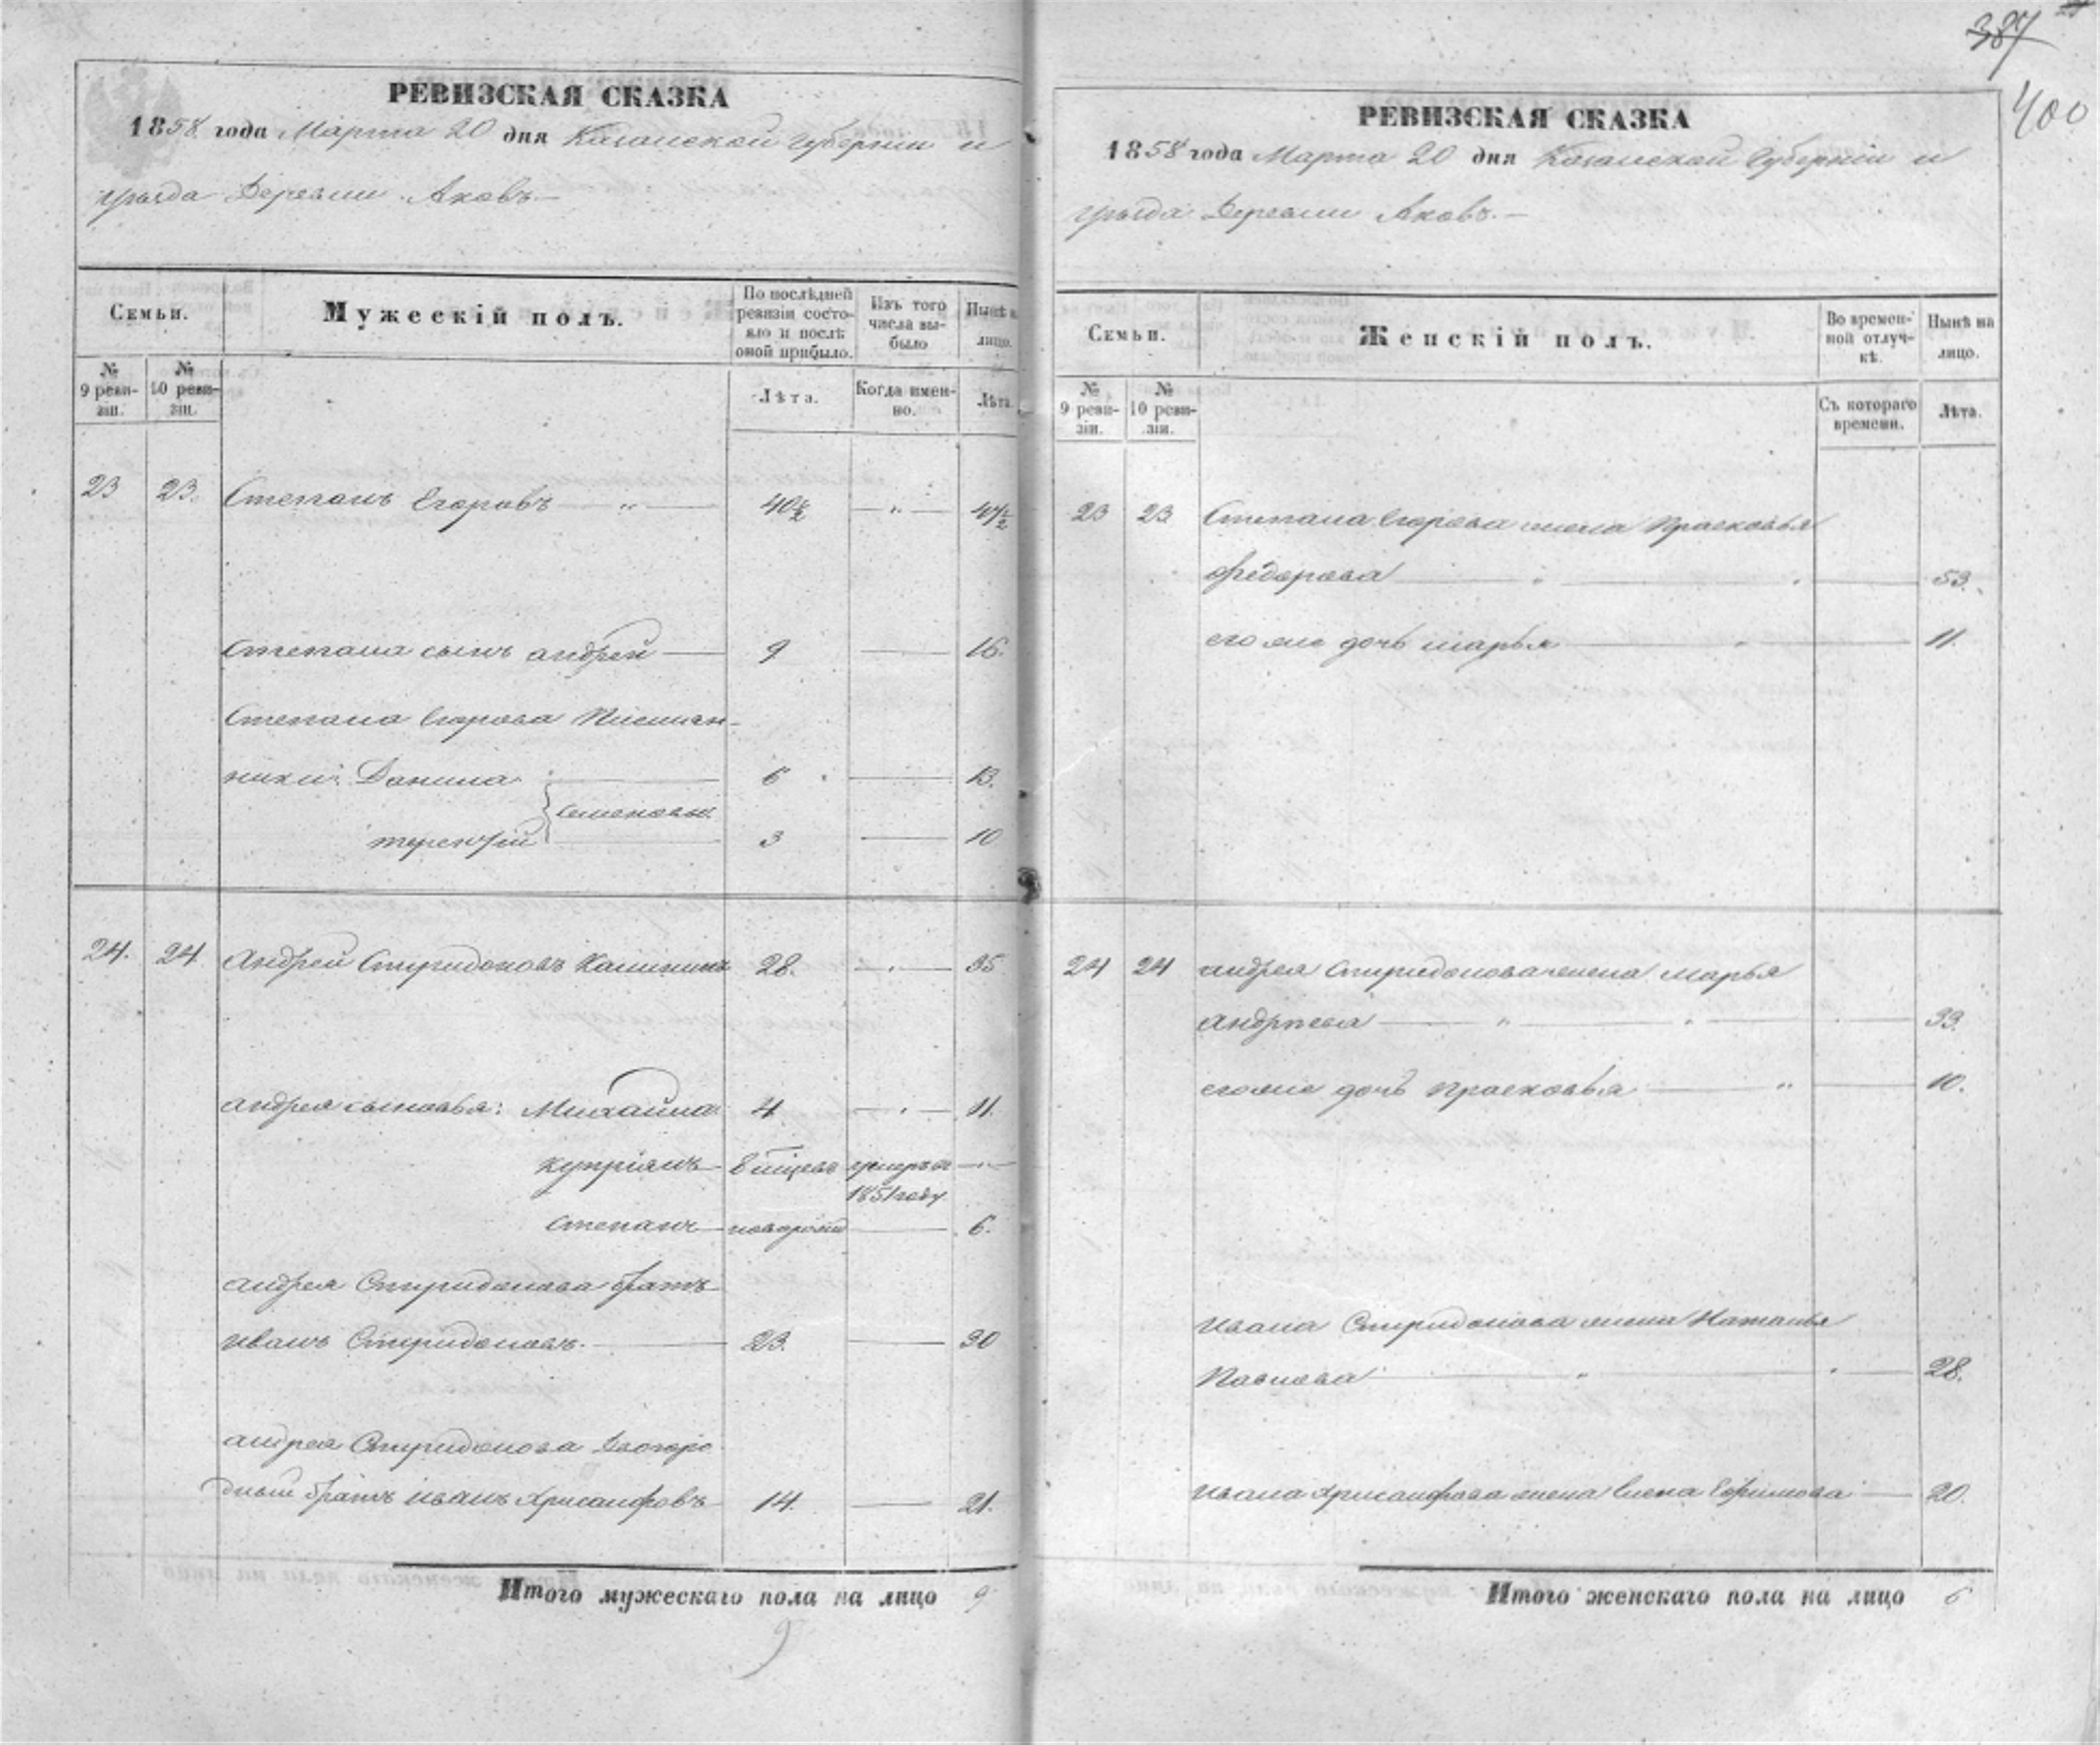 387
400
РЕВИЗСКАЯ СКАЗКА
1858 года Марта 20 дня Казанской Губернии и
уѣзда Деревни Аковъ
Семьи.
Мужескій полъ.
По послѣдней ревизіи состояло и послѣ оной прибыло.
Изъ того числа выбыло
Нынѣ на лицо.
№ 9 ревизіи.
№ 10 ревизіи.
Лѣта.
Когда именно.
Лѣта.
23 23. Степанъ Егоровъ — " — 40½ — " — 47½
Степана сынъ Андрей — 9 — 16.
Степана Егорова Племян-
ники: Данила — 6 — 13.
Семеновы
Терентій — 3 — 10
24. 24 Андрей Спиридоновъ Калининъ 28. — " — 35
Андрея сыновья: Михайла 4 — " — 11.
Купріянъ — 8 мѣсяц умеръ въ — " —
1851 году
Степанъ — новорожд — 6.
Андрея Спиридонова братъ
Иванъ Спиридоновъ. — 23. — 30
Андрея Спиридонова Двоюро
дный братъ Иванъ Хрисанфовъ — 14. — 21.
Итого мужескаго пола на лицо 9
9
РЕВИЗСКАЯ СКАЗКА
1858 года Марта 20 дня Казанской Губерніи и
уѣзда Деревни Аковъ. —
Семьи.
Женскій полъ.
Во временной отлучкѣ.
Нынѣ на лицо.
№ 9 ревизіи.
№ 10 ревизіи.
Съ котораго времени.
Лѣта.
23 23 Степана Егорова жена Прасковья
Федорова — " — 53.
его же дочь Марья — " — 11.
24 24 Андрея Спиридонова жена Марья
Андреева — " — " — 33.
его же дочь Прасковья — " — 10.
Ивана Спиридонова жена Наталья
Павлова — " — " — 28.
Ивана Хрисанфова жена Елена Ефимова — 20.
Итого женскаго пола на лицо 6